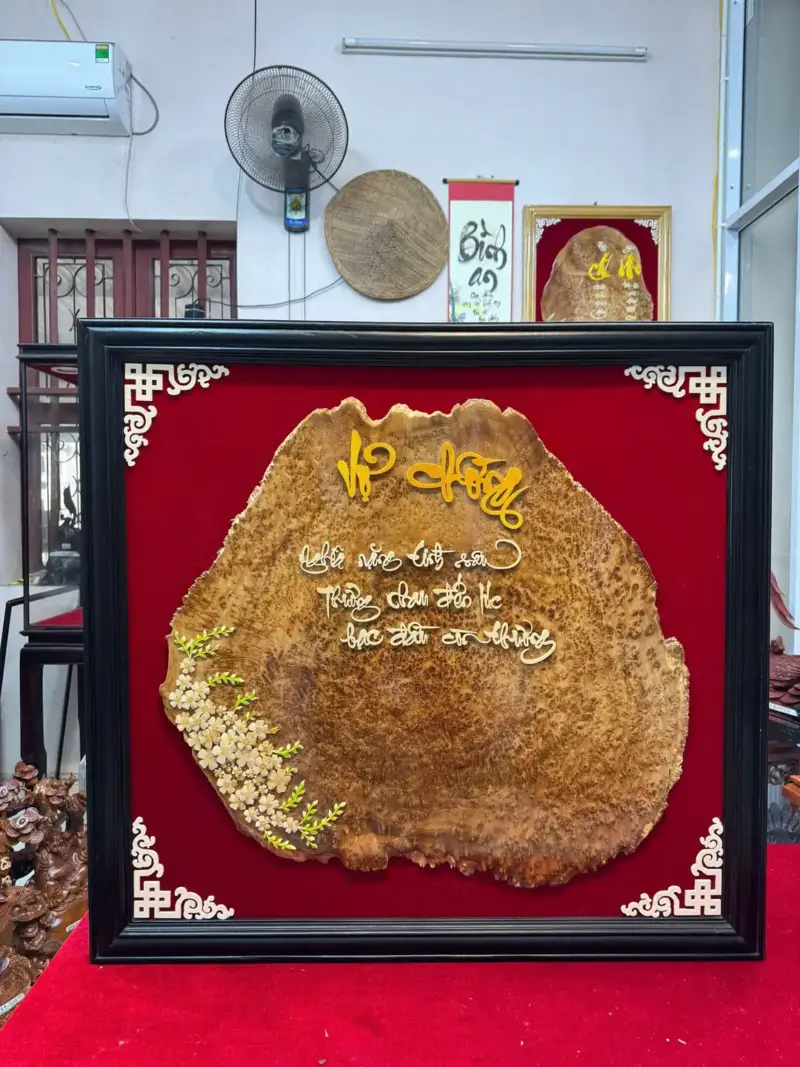 Bình
an
Vợ chồng
Nghĩa nặng tình sâu
Thương nhau đến lúc
bạc đầu còn thương